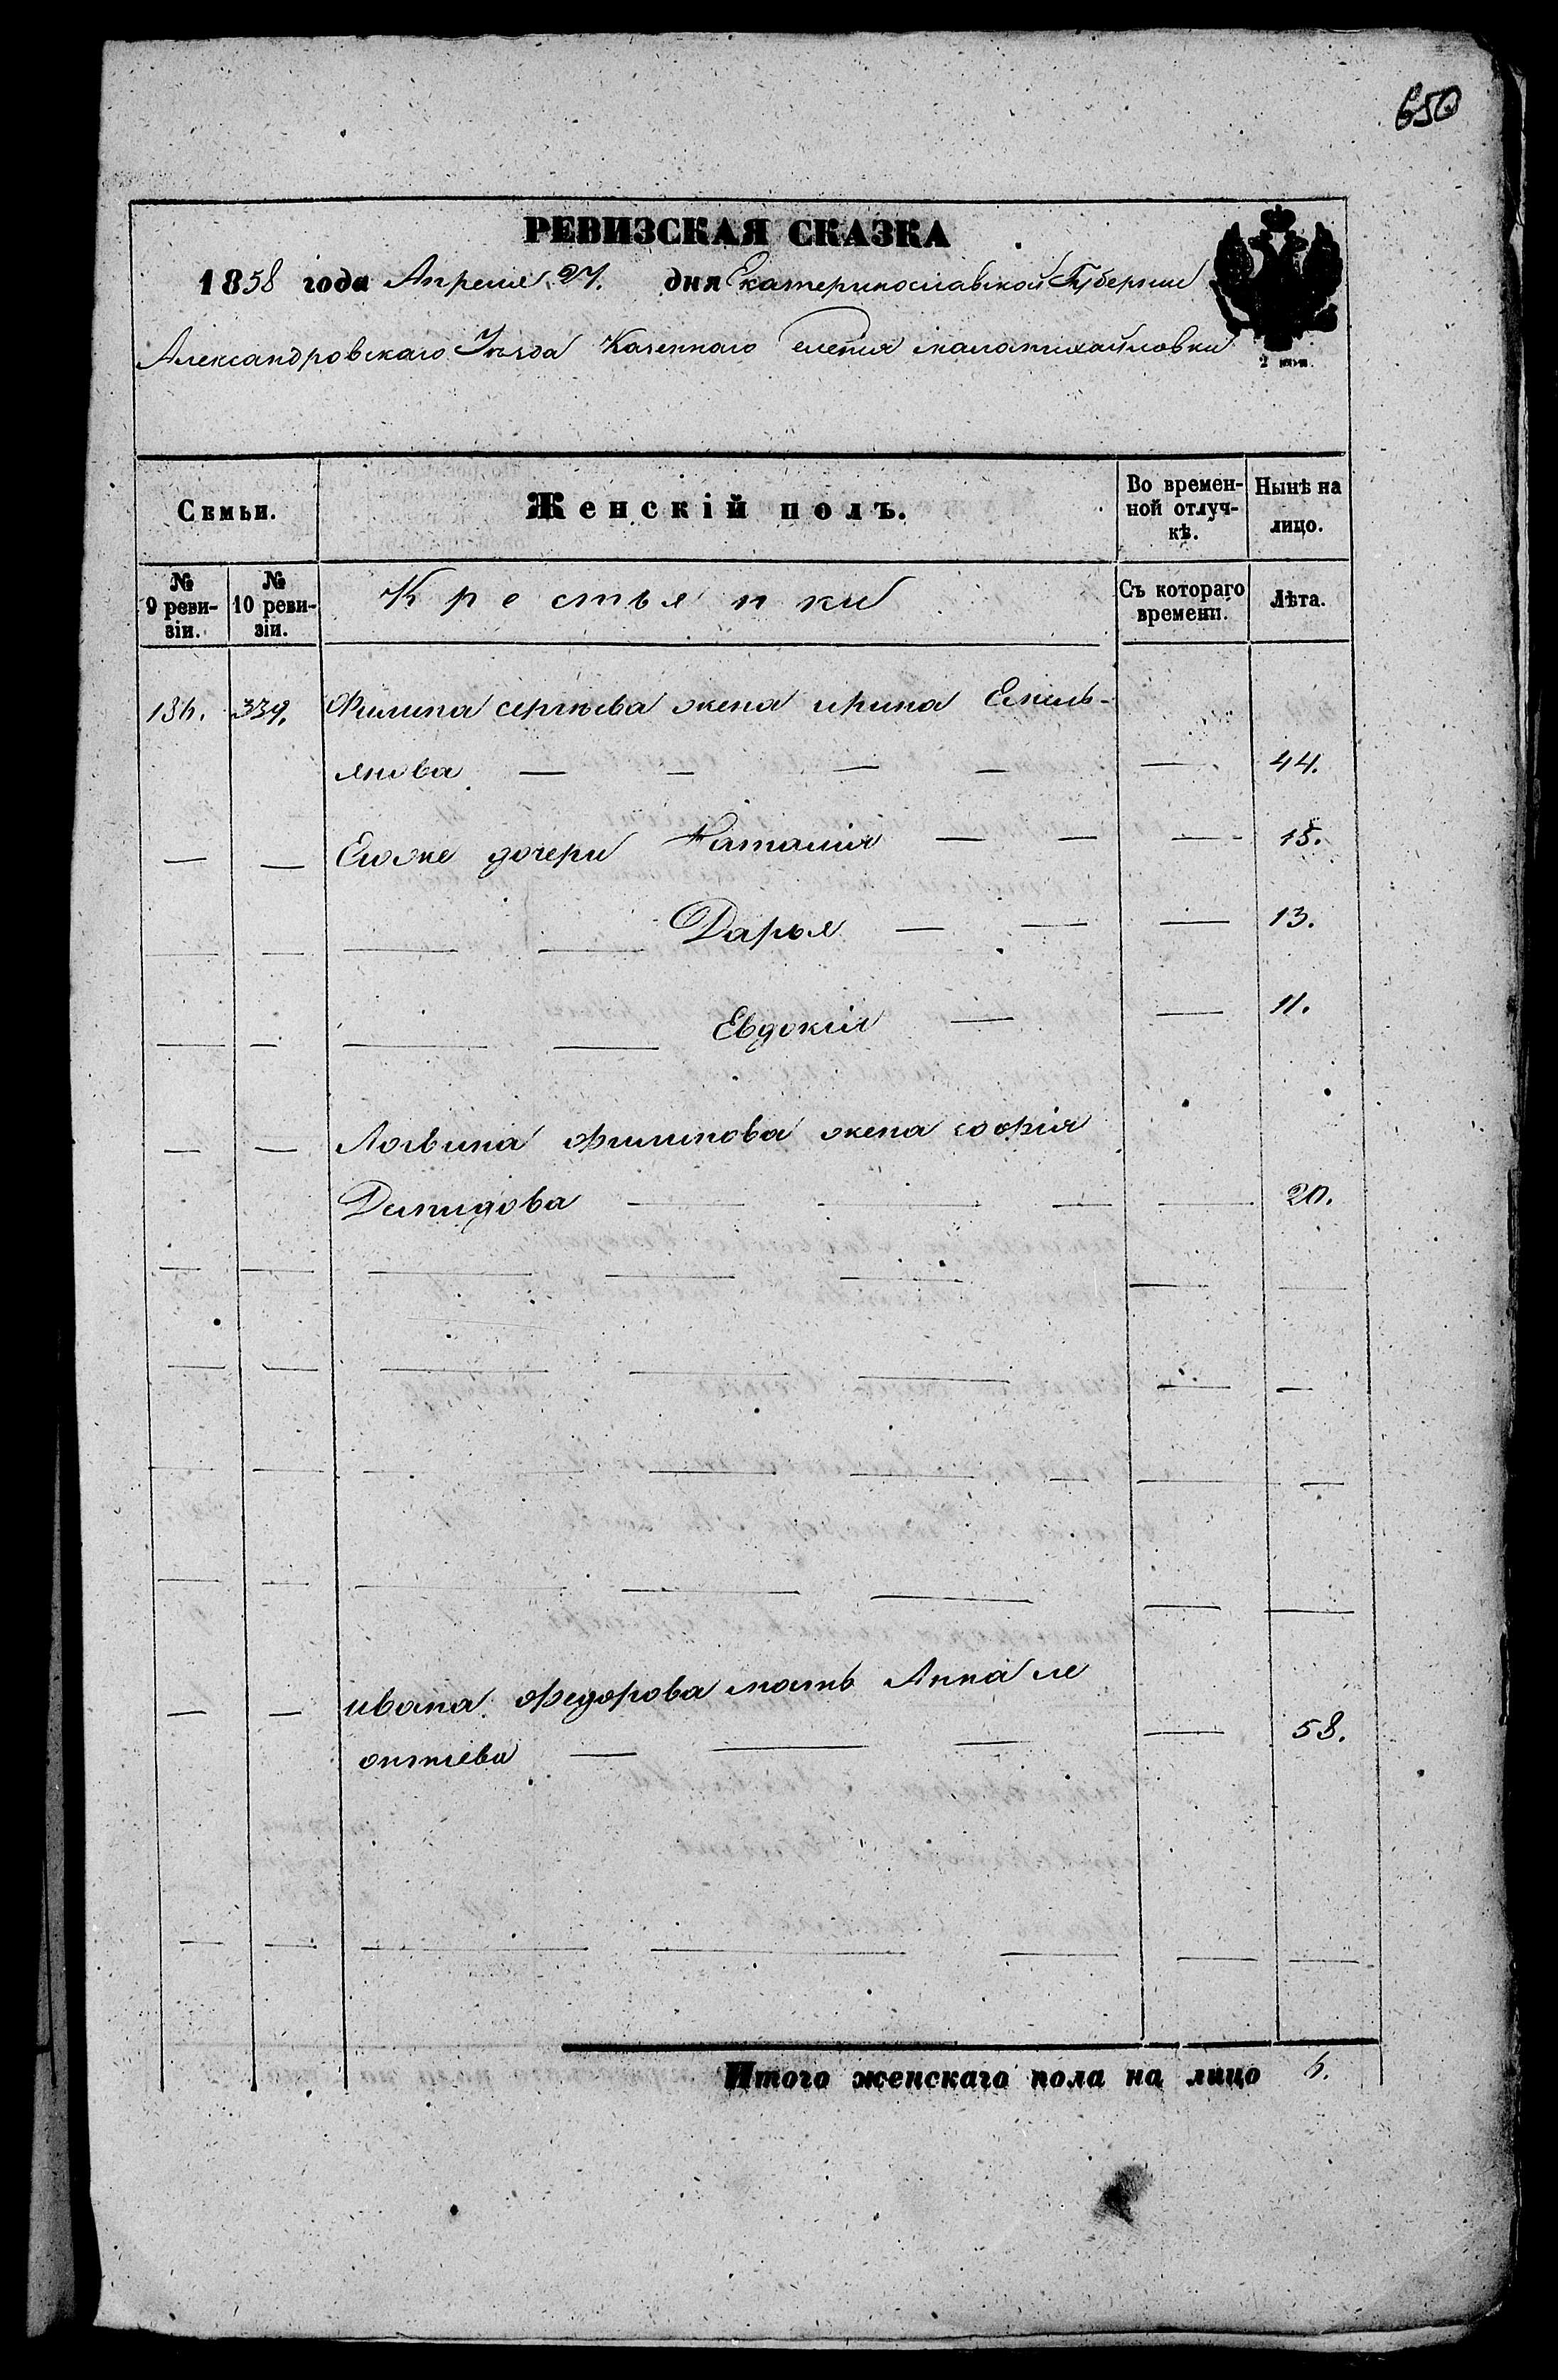 650
РЕВИЗСКАЯ СКАЗКА
1858 года Апреля 27. дня Екатеринославской Губернии
Александровскаго Уезда Казеннаго селения маломихайловки
2 коп.
Семьи.
Женскій полъ.
Во времен-
ной отлуч-
кѣ.
Нынѣ на
лицо.
№
9 реви-
зіи.
№
10 реви-
зіи.
Крестьянки
Съ котораго
времени.
Лѣта.
136. 339. Филипа сергѣева жена ирина Емель-
янова — — — — — 44.
— — Егоже дочери Наталія — — — 15.
— — — — Дарья — — — 13.
— — — — Евдокія — — 11.
— — Логвина филипова жена софія
Демидова — — — — 20.
— — ивана федорова мать Анна ле
онтиева — — — — 58.
Итого женскаго пола на лицо 6.